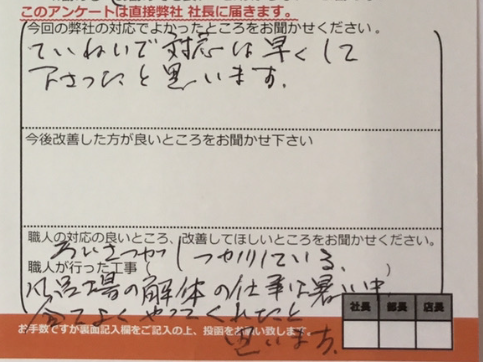 このアンケートは直接弊社 社長に届きます。
今回の弊社の対応でよかったところをお聞かせください。
ていねいで対応は早くして
下さったと思います。
今後改善した方が良いところをお聞かせ下さい
職人の対応の良いところ、改善してほしいところをお聞かせください。
あいさつがしっかりしている、
職人が行った工事（　　）
風呂場の解体の仕事は暑い中
よくやってくれたと
思います。
社長 部長 店長
お手数ですが裏面記入欄をご記入の上、投函をお願い致します。